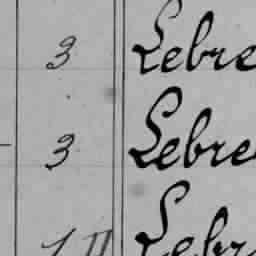 3 Lebre
3 Lebre
Lebr